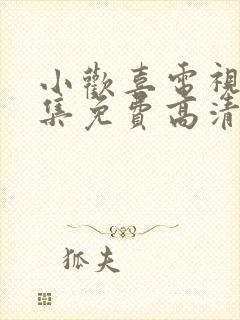 小歡喜電視
集免費高清
狐夫